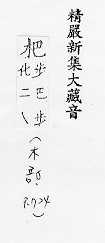 精嚴新集大藏音
杷
步巴步
化二\
(木部: